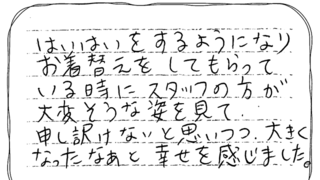 はいはいをするようになり
お着替えをしてもらって
いる時にスタッフの方が
大変そうな姿を見て.
申し訳けないと思いつつ.大きく
なったなあと幸せを感じました。